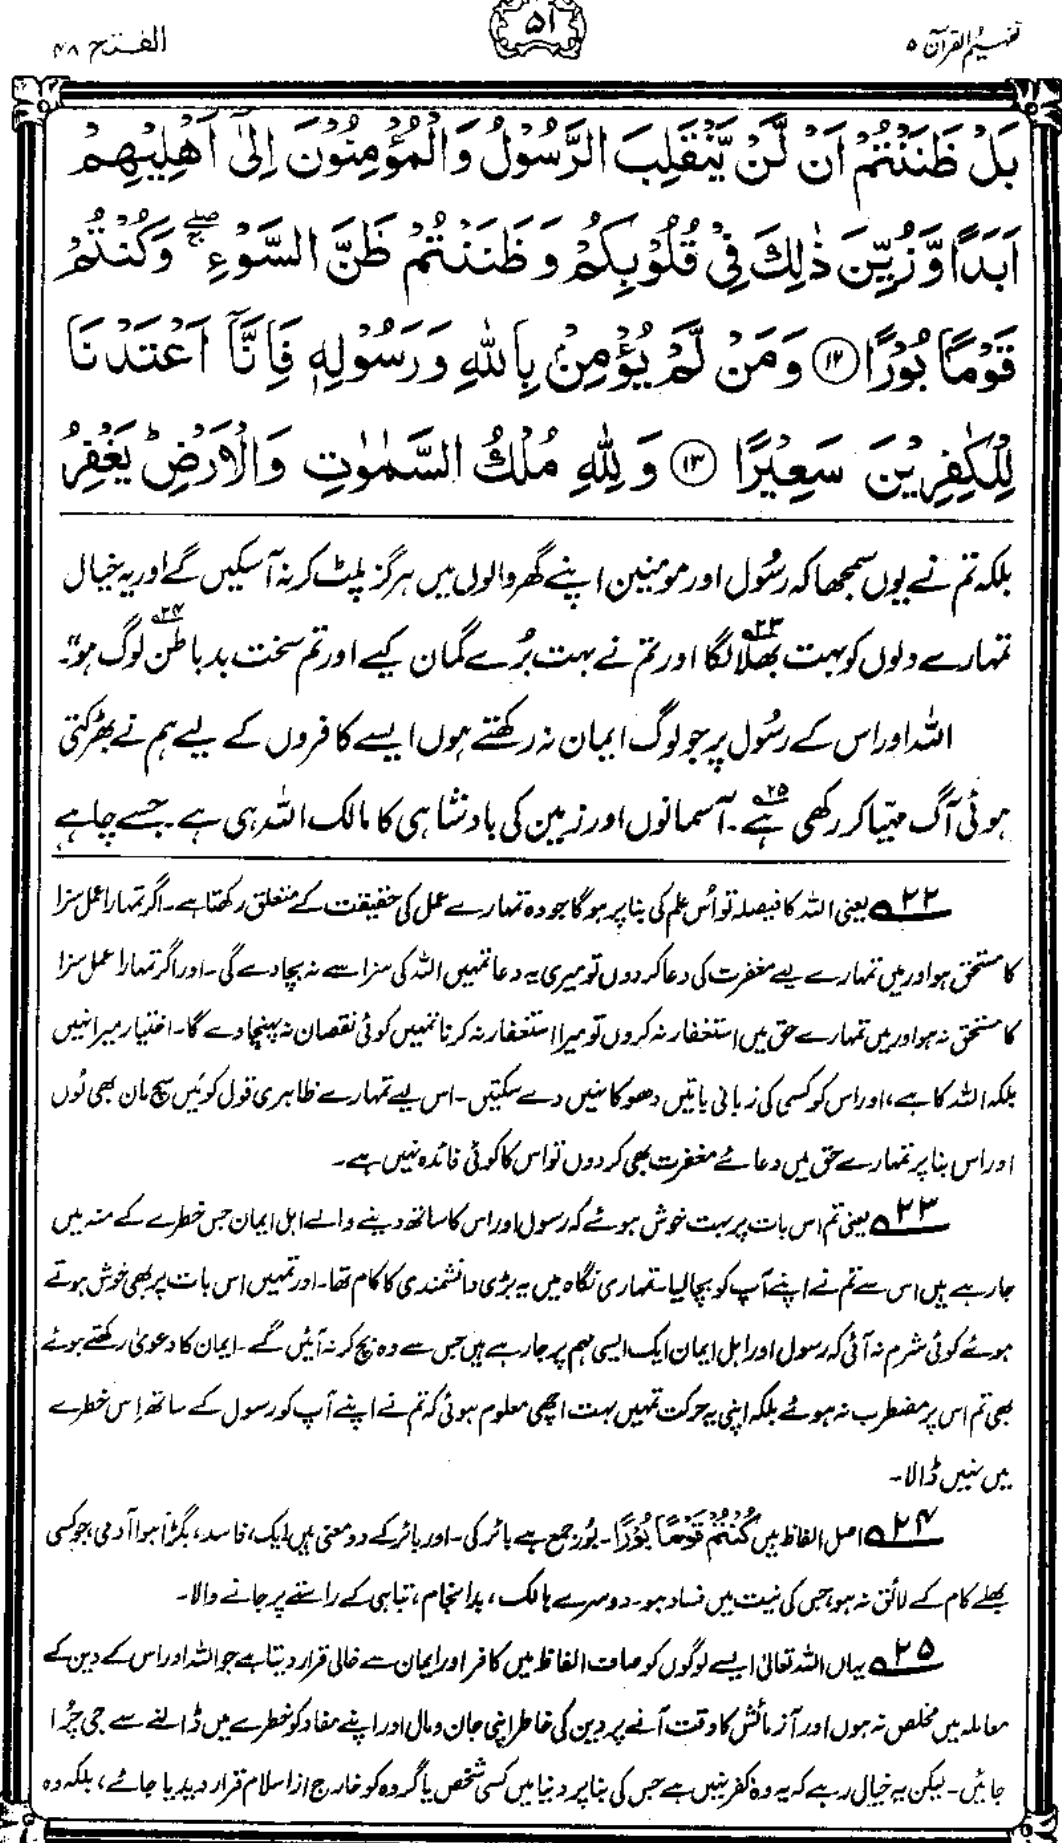 تفہیم القرآن ۵
۵۱
الفتح ۴۸
بَلْ ظَنَنْتُمْ اَنْ لَّنْ يَّنْقَلِبَ الرَّسُوْلُ وَالْمُؤْمِنُوْنَ اِلٰٓى اَهْلِيْهِمْ
اَبَدًا وَّزُيِّنَ ذٰلِكَ فِيْ قُلُوْبِكُمْ وَظَنَنْتُمْ ظَنَّ السَّوْءِ ۖۚ وَكُنْتُمْ
قَوْمًۢا بُوْرًا ⑫ وَمَنْ لَّمْ يُؤْمِنْۢ بِاللّٰهِ وَرَسُوْلِهٖ فَاِنَّآ اَعْتَدْنَا
لِلْكٰفِرِيْنَ سَعِيْرًا ⑬ وَلِلّٰهِ مُلْكُ السَّمٰوٰتِ وَالْاَرْضِ ؕ يَغْفِرُ
بلکہ تم نے یوں سمجھا کہ رسُول اور مومنین اپنے گھر والوں میں ہرگز پلٹ کر نہ آ سکیں گے اور یہ خیال
تمہارے دلوں کو بہت بھلا۲۳ لگا اور تم نے بہت بُرے گمان کیے اور تم سخت بد باطن۲۴ لوگ ہو"۔
اللہ اور اس کے رسُول پر جو لوگ ایمان نہ رکھتے ہوں ایسے کافروں کے لیے ہم نے بھڑکتی
ہوئی آگ مہیّا کر رکھی ہے۲۵۔ آسمانوں اور زمین کی بادشاہی کا مالک اللہ ہی ہے۔ جسے چاہے
۲۲ یعنی اللہ کا فیصلہ تو اُس علم کی بنا پر ہوگا جو وہ تمہارے عمل کی حقیقت کے متعلق رکھتا ہے۔ اگر تمہارا عمل سزا
کا مستحق ہو اور میں تمہارے لیے مغفرت کی دعا کر دوں تو میری یہ دعا تمہیں اللہ کی سزا سے نہ بچا دے گی۔ اور اگر تمہارا عمل سزا
کا مستحق نہ ہو اور میں تمہارے حق میں استغفار نہ کروں تو میرا استغفار نہ کرنا تمہیں کوئی نقصان نہ پہنچا دے گا۔ اختیار میرا نہیں
بلکہ اللہ کا ہے، اور اس کو کسی کی زبانی باتیں دھوکا نہیں دے سکتیں۔ اس لیے تمہارے ظاہری قول کو میَں سچ مان بھی لُوں
اور اس بنا پر تمہارے حق میں دعائے مغفرت بھی کر دوں تو اس کا کوئی فائدہ نہیں ہے۔
۲۳ یعنی تم اس بات پر بہت خوش ہوئے کہ رسول اور اس کا ساتھ دینے والے اہل ایمان جس خطرے کے منہ میں
جا رہے ہیں اس سے تم نے اپنے آپ کو بچا لیا۔ تمہاری نگاہ میں یہ بڑی دانشمندی کا کام تھا۔ اور تمہیں اس بات پر بھی خوش ہوتے
ہوئے کوئی شرم نہ آئی کہ رسول اور اہل ایمان ایک ایسی مہم پر جا رہے ہیں جس سے وہ بچ کر نہ آئیں گے۔ ایمان کا دعویٰ رکھتے ہوئے
بھی تم اس پر مضطرب نہ ہوئے بلکہ اپنی یہ حرکت تمہیں بہت اچھی معلوم ہوئی کہ تم نے اپنے آپ کو رسول کے ساتھ اِس خطرے
میں نہیں ڈالا۔
۲۴ اصل الفاظ ہیں كُنْتُمْ قَوْمًۢا بُوْرًا۔ بُور جمع ہے بائر کی۔ اور بائر کے دو معنی ہیں۔ ایک، فاسد، بگڑا ہوا آدمی، جو کسی
بھلے کام کے لائق نہ ہو، جس کی نیت میں فساد ہو۔ دوسرے ہالک، بد انجام، تباہی کے راستے پر جانے والا۔
۲۵ یہاں اللہ تعالیٰ ایسے لوگوں کو صاف الفاظ میں کافر اور ایمان سے خالی قرار دیتا ہے جو اللہ اور اس کے دین کے
معاملہ میں مخلص نہ ہوں اور آزمائش کا وقت آنے پر دین کی خاطر اپنی جان و مال اور اپنے مفاد کو خطرے میں ڈالنے سے جی چُرا
جائیں۔ لیکن یہ خیال رہے کہ یہ وہ کفر نہیں ہے جس کی بنا پر دنیا میں کسی شخص یا گروہ کو خارج از اسلام قرار دیدیا جائے، بلکہ وہ